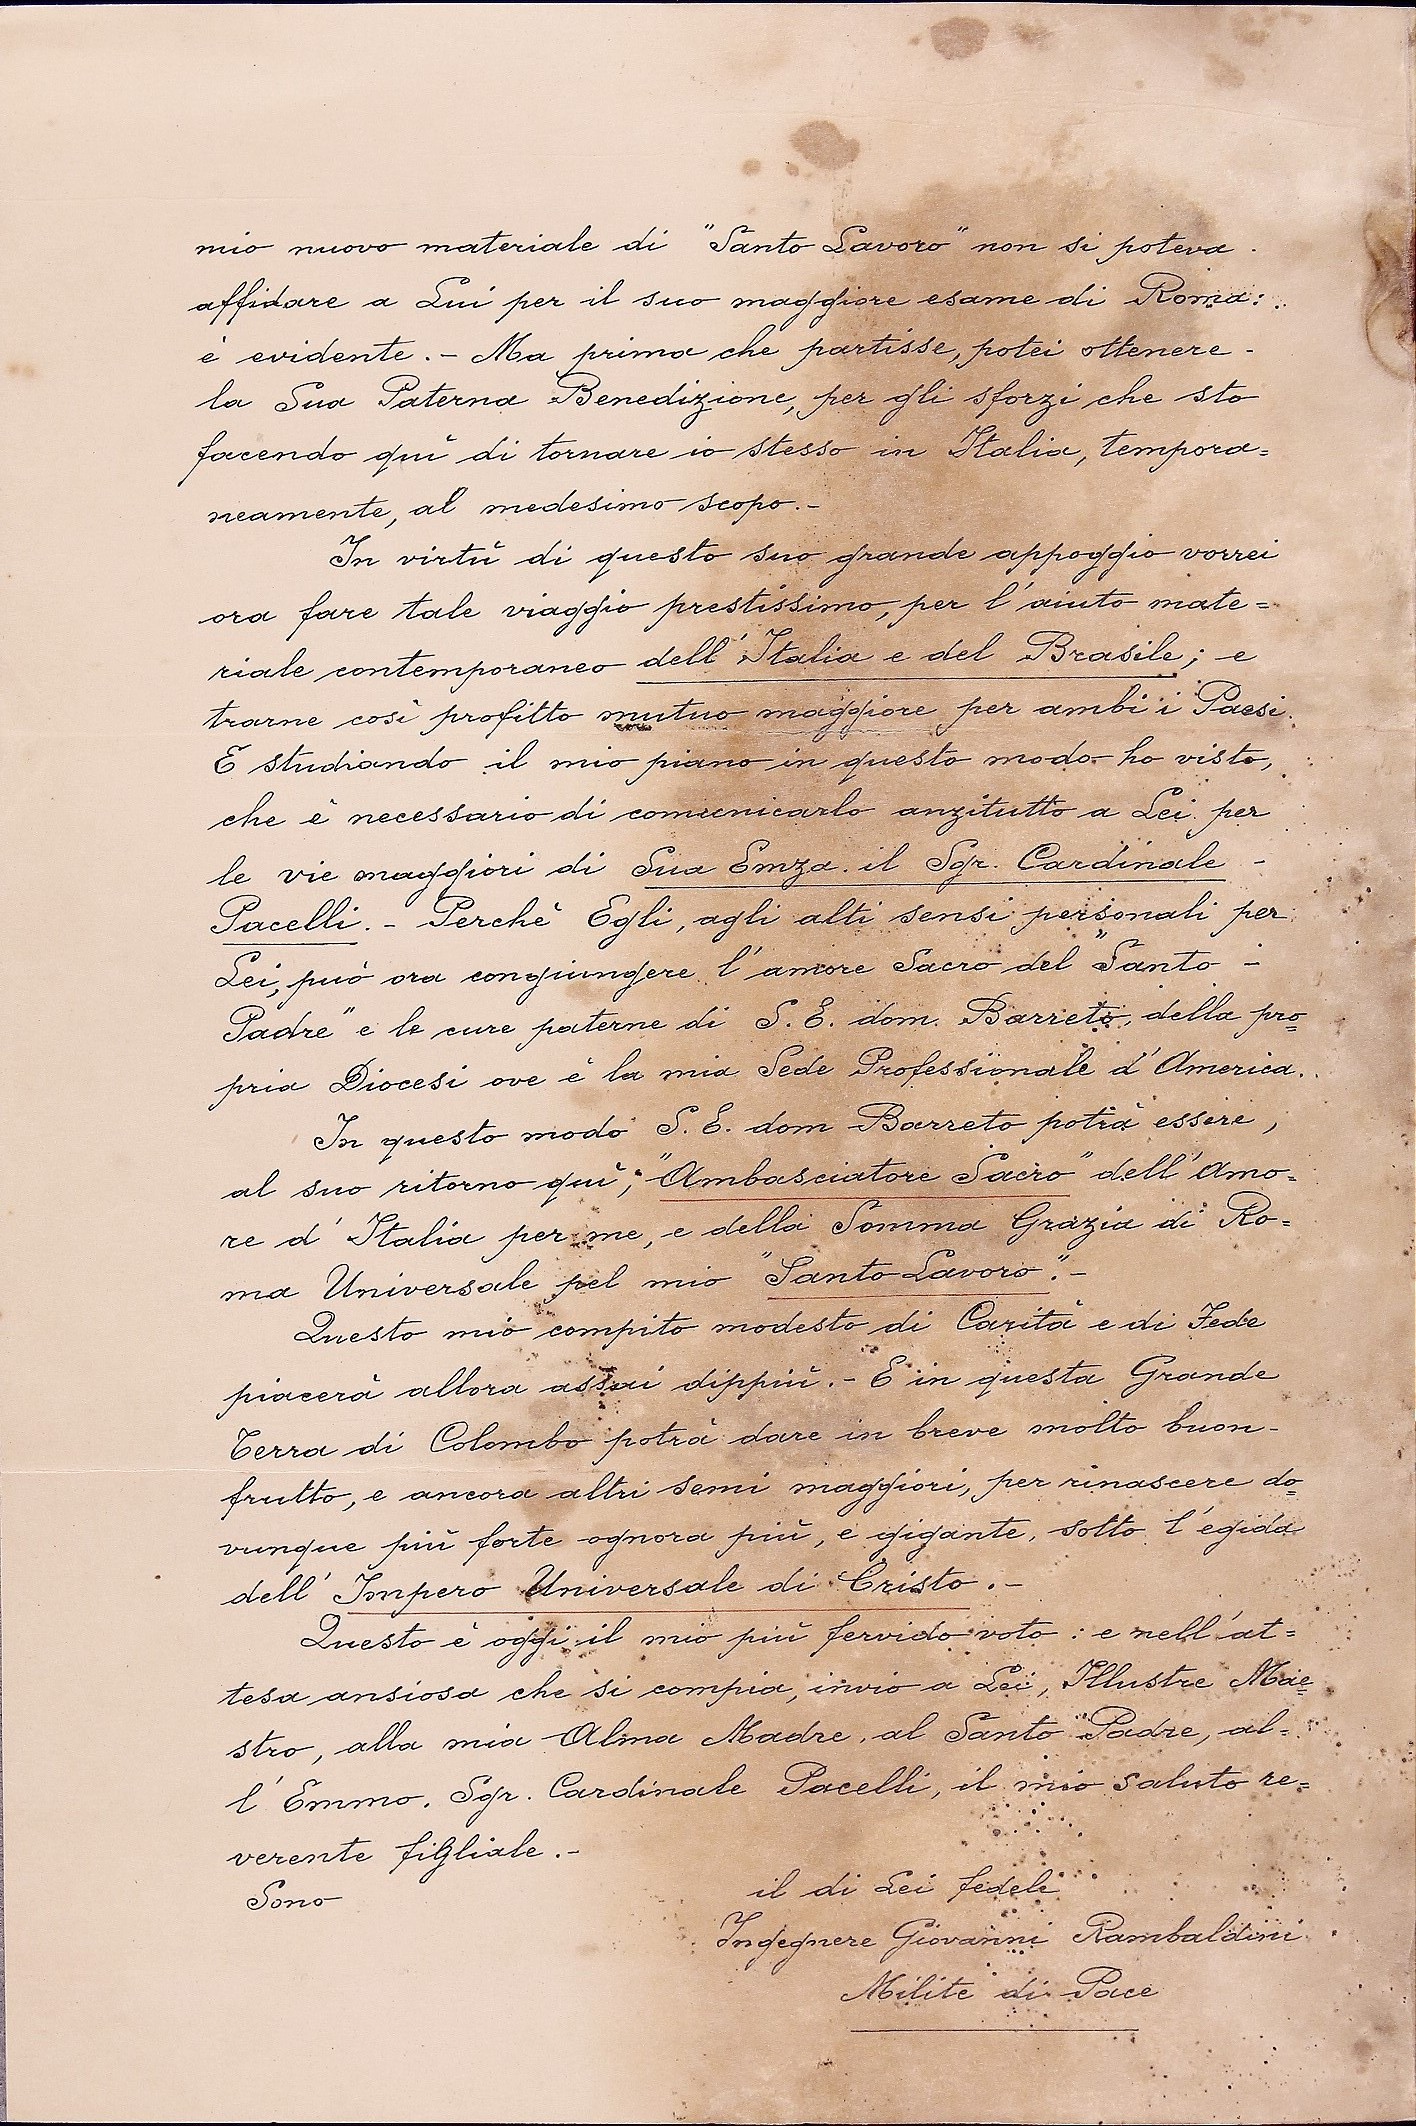 mio nuovo materiale di "Santo Lavoro" non si poteva
affidare a Lui per il suo maggiore esame di Roma:
è evidente.- Ma prima che partisse, potei ottenere -
la Sua Paterna Benedizione, per gli sforzi che sto
facendo quì di tornare io stesso in Italia, tempora=
neamente, al medesimo scopo.-
In virtù di questo suo grande appoggio vorrei
ora fare tale viaggio prestissimo, per l'aiuto mate=
riale contemporaneo dell'Italia e del Brasile; e
trarne così profitto mutuo maggiore per ambi i Paesi.
E studiando il mio piano in questo modo ho visto,
che è necessario di comunicarlo anzitutto a Lei per
le vie maggiori di Sua Emza. il Sgr. Cardinale -
Pacelli.- Perchè Egli, agli alti sensi personali per
Lei, può ora congiungere l'amore Sacro del "Santo -
Padre" e le cure paterne di S. E. dom. Barreto, della pro=
pria Diocesi ove è la mia Sede Professionale d'America.
In questo modo S. E. dom Barreto potrà essere,
al suo ritorno quì, "Ambasciatore Sacro" dell'Amo=
re d'Italia per me, e della Somma Grazia di Ro=
ma Universale pel mio "Santo Lavoro".-
Questo mio compito modesto di Carità e di Fede
piacerà allora assai dippiù.- E in questa Grande
Terra di Colombo potrà dare in breve molto buon-
frutto, e ancora altri semi maggiori, per rinascere do=
vunque più forte ognora più, e gigante, sotto l'egida
dell'Impero Universale di Cristo.-
Questo è oggi il mio più fervido voto: e nell'at=
tesa ansiosa che si compia, invio a Lei, Illustre Mae=
stro, alla mia Alma Madre, al Santo Padre, al=
l'Emmo. Sgr. Cardinale Pacelli, il mio saluto re=
verente figliale.-
Sono
il di Lei fedele
Ingegnere Giovanni Rambaldini
Milite di Pace